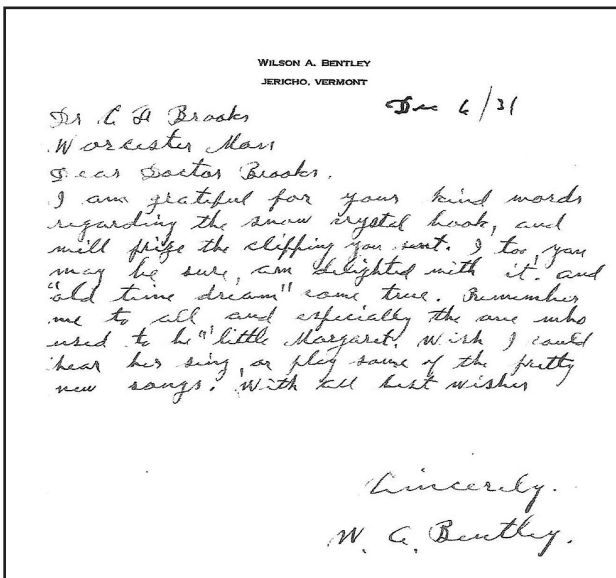 WILSON A. BENTLEY
JERICHO, VERMONT
Dec 6/31
Dr C F Brooks
Worcester Mass
Dear Doctor Brooks.
I am grateful for your kind words
regarding the snow crystal book, and
will prize the clipping you sent. I too, you
may be sure, am delighted with it. and
"old time dream" come true. Remember
me to all and especially the one who
used to be "little Margaret. Wish I could
hear her sing, or play some of the pretty
new songs. With all best wishes
Sincerely.
W. A. Bentley.